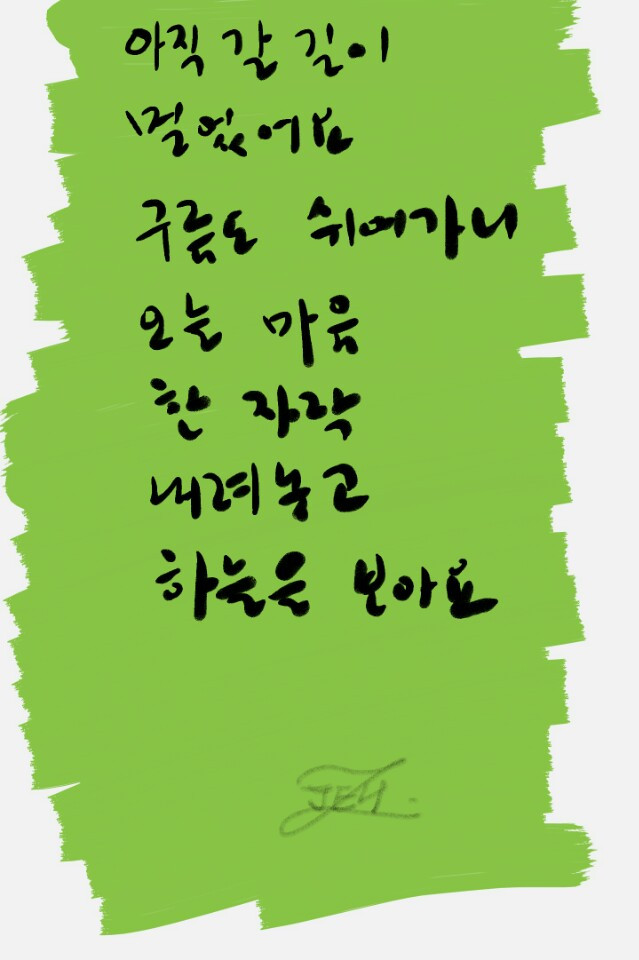 아직 갈 길이
멀었어요
구름도 쉬어가니
오늘 마음
한 자락
내려놓고
하늘은 보아요